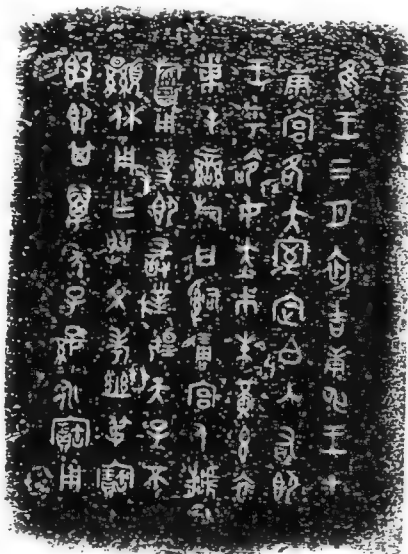 隹王三月初吉庚申王才
康宮各大室定白入右即
王乎命女赤巿朱黃玄衣
黹屯䜌旂曰𤔲琱宮人虣
旛用事即敢對揚天子不
顯休用乍朕文考幽弔寶
簋即其萬年子孫永寶用